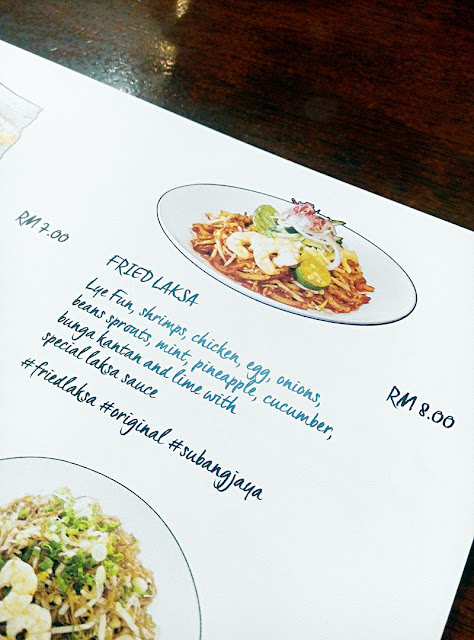 RM 7.00
FRIED LAKSA
Lye Fun, shrimps, chicken, egg, onions,
beans sprouts, mint, pineapple, cucumber,
bunga kantan and lime with
special laksa sauce
#friedlaksa #original #subangjaya
RM 8.00